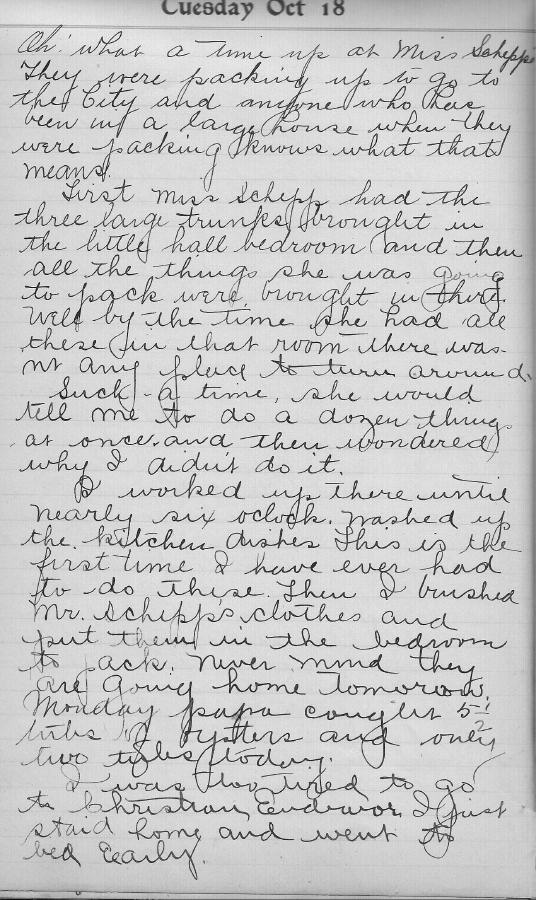 Tuesday Oct 18
Oh! what a time up at Miss Schepp's
They were packing up to go to
the City and anyone who has
been in a large house when they
were packing knows what that
means.
First Miss Schepp had the
three large trunks brought in
the little hall bedroom and then
all the things she was going
to pack were brought in there.
Well by the time she had all
these in that room there was
nt any place to turn around.
Such a time, she would
tell me to do a dozen things
at once and then wondered
why I didn't do it.
I worked up there until
nearly six oclock. Washed up
the kitchen dishes This is the
first time I have ever had
to do these. Then I brushed
Mr. Schepp's clothes and
put them in the bedroom
to pack. Never mind they
are going home tomorrow.
Monday papa caught 5 1/2
tubs of oysters and only
two tubs today.
I was too tired to go
to Christian Endeavor I just
staid home and went to
bed Eearly.